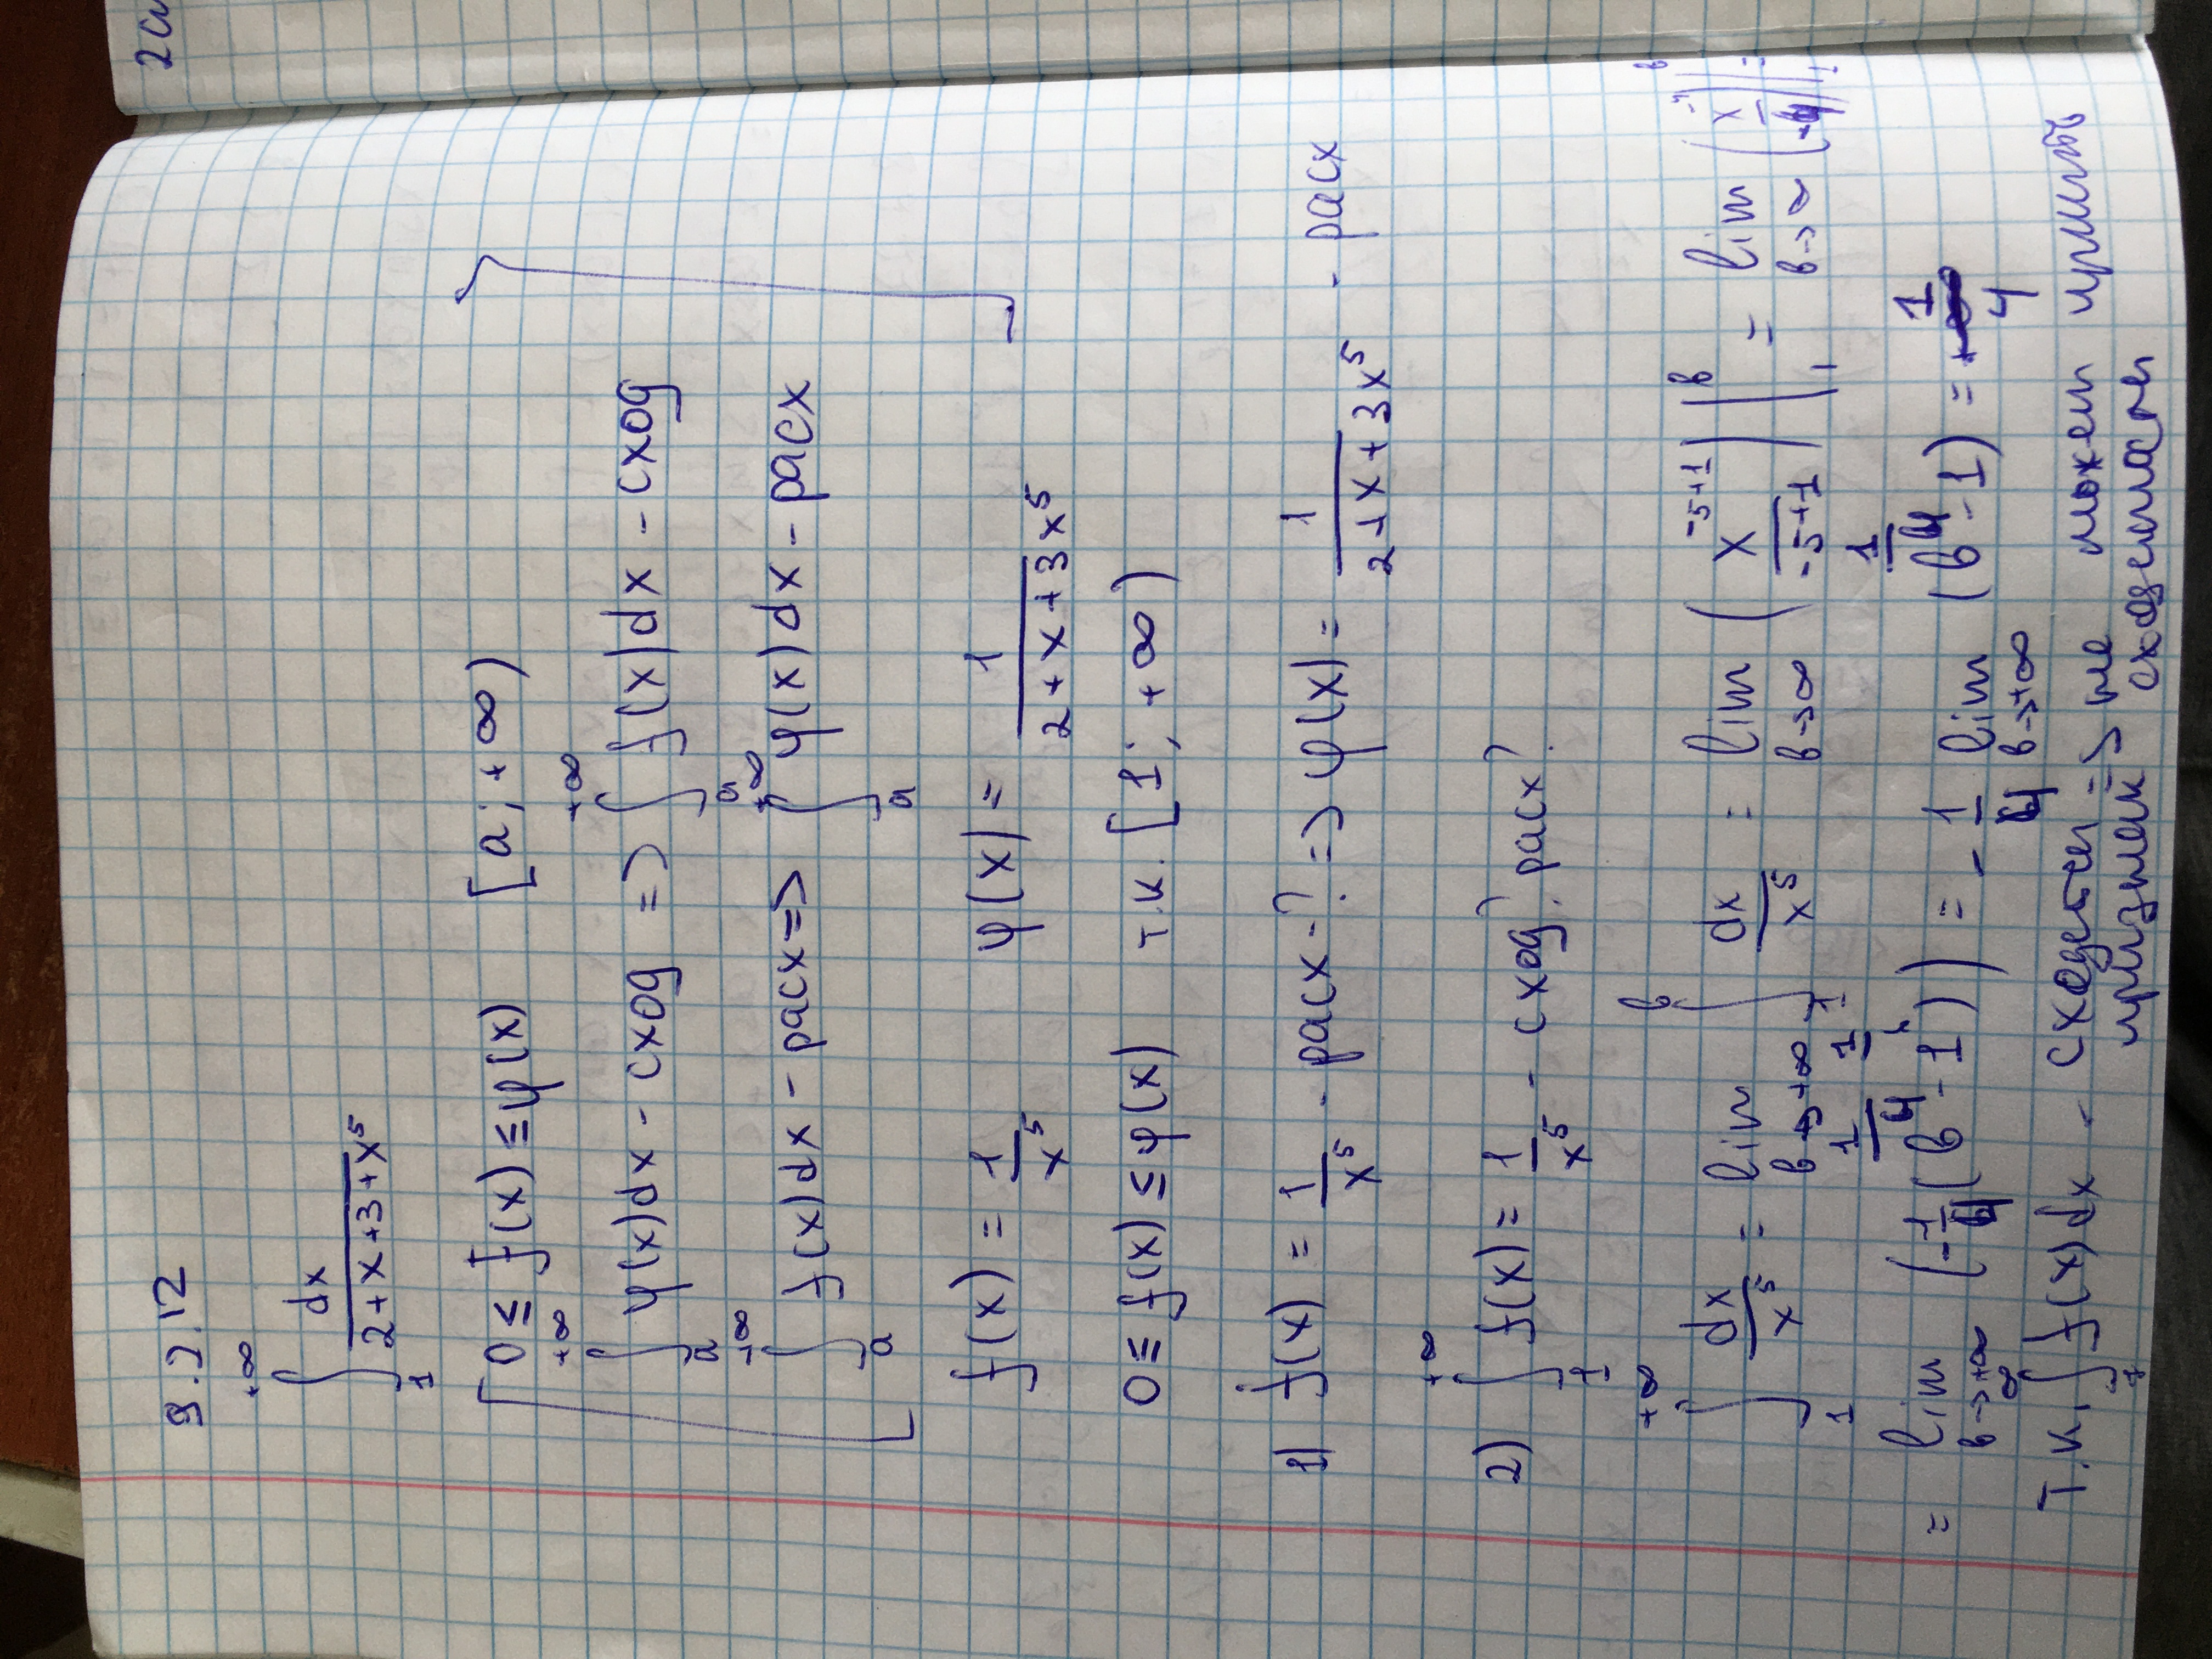 9.2.12
2 сл
+∞
∫ dx / (2+x+3+x⁵)
1
[ 0 ≤ f(x) ≤ φ(x) [a; +∞)
∫ₐ^{+∞} φ(x)dx - сход => ∫ₐ^{+∞} f(x)dx - сход
∫ₐ^{+∞} f(x)dx - расх => ∫ₐ^{+∞} φ(x)dx - расх ]
f(x) = 1/x⁵ φ(x) = 1/(2+x+3x⁵)
0 ≤ f(x) ≤ φ(x) т.к. [1; +∞)
1) f(x) = 1/x⁵ - расх -? => φ(x) = 1/(2+x+3x⁵) - расх
2) ∫₁^{+∞} f(x) = 1/x⁵ - сход? расх?
∫₁^{+∞} dx/x⁵ = lim_{b→+∞} ∫₁^b dx/x⁵ = lim_{b→∞} (x^{-5+1}/(-5+1)) |₁^b = lim_{b→∞} (x^{-4}/-4) |₁^b =
= lim_{b→+∞} (-1/4 (1/b⁴ - 1/1)) = -1/4 lim_{b→+∞} (1/b⁴ - 1) = 1/4
т.к. ∫₁^∞ f(x)dx - сходится => не может
признак сходимости